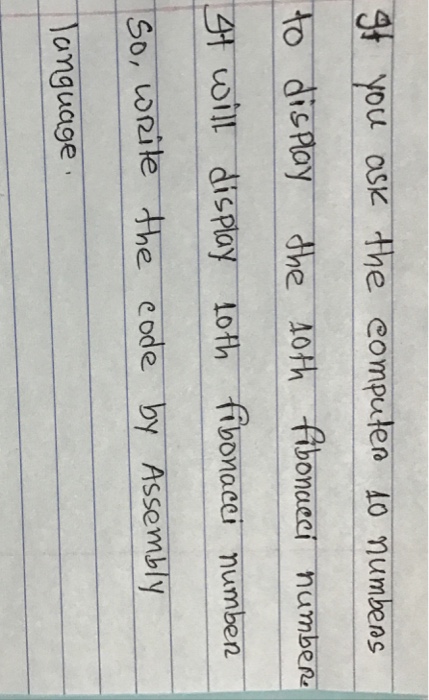 If you ask the computer 10 numbers
to display the 10th fibonacci number.
It will display 10th fibonacci number
so, write the code by Assembly
language.